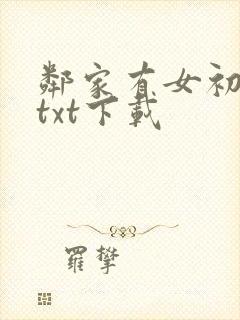 鄰家有女初
txt下載
羅攀